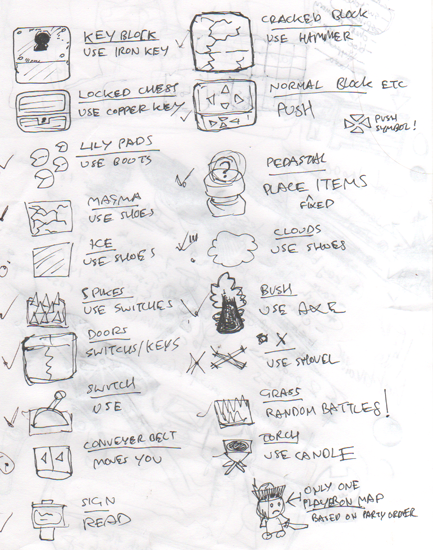 KEY BLOCK
USE IRON KEY
CRACKED BLOCK
USE HAMMER
LOCKED CHEST
USE COPPER KEY
NORMAL BLOCK ETC
PUSH
PUSH
SYMBOL!
LILY PADS
USE BOOTS
PEDASTAL
PLACE ITEMS
FIXED
MAGMA
USE SHOES
CLOUDS
USE SHOES
ICE
USE SHOES
SPIKES
USE SWITCHES
BUSH
USE AXE
DOORS
SWITCHS/KEYS
X
USE SHOVEL
SWITCH
USE
GRASS
RANDOM BATTLES!
CONVEYER BELT
MOVES YOU
TORCH
USE CANDLE
SIGN
READ
ONLY ONE
PLAYER ON MAP
BASED ON PARTY ORDER